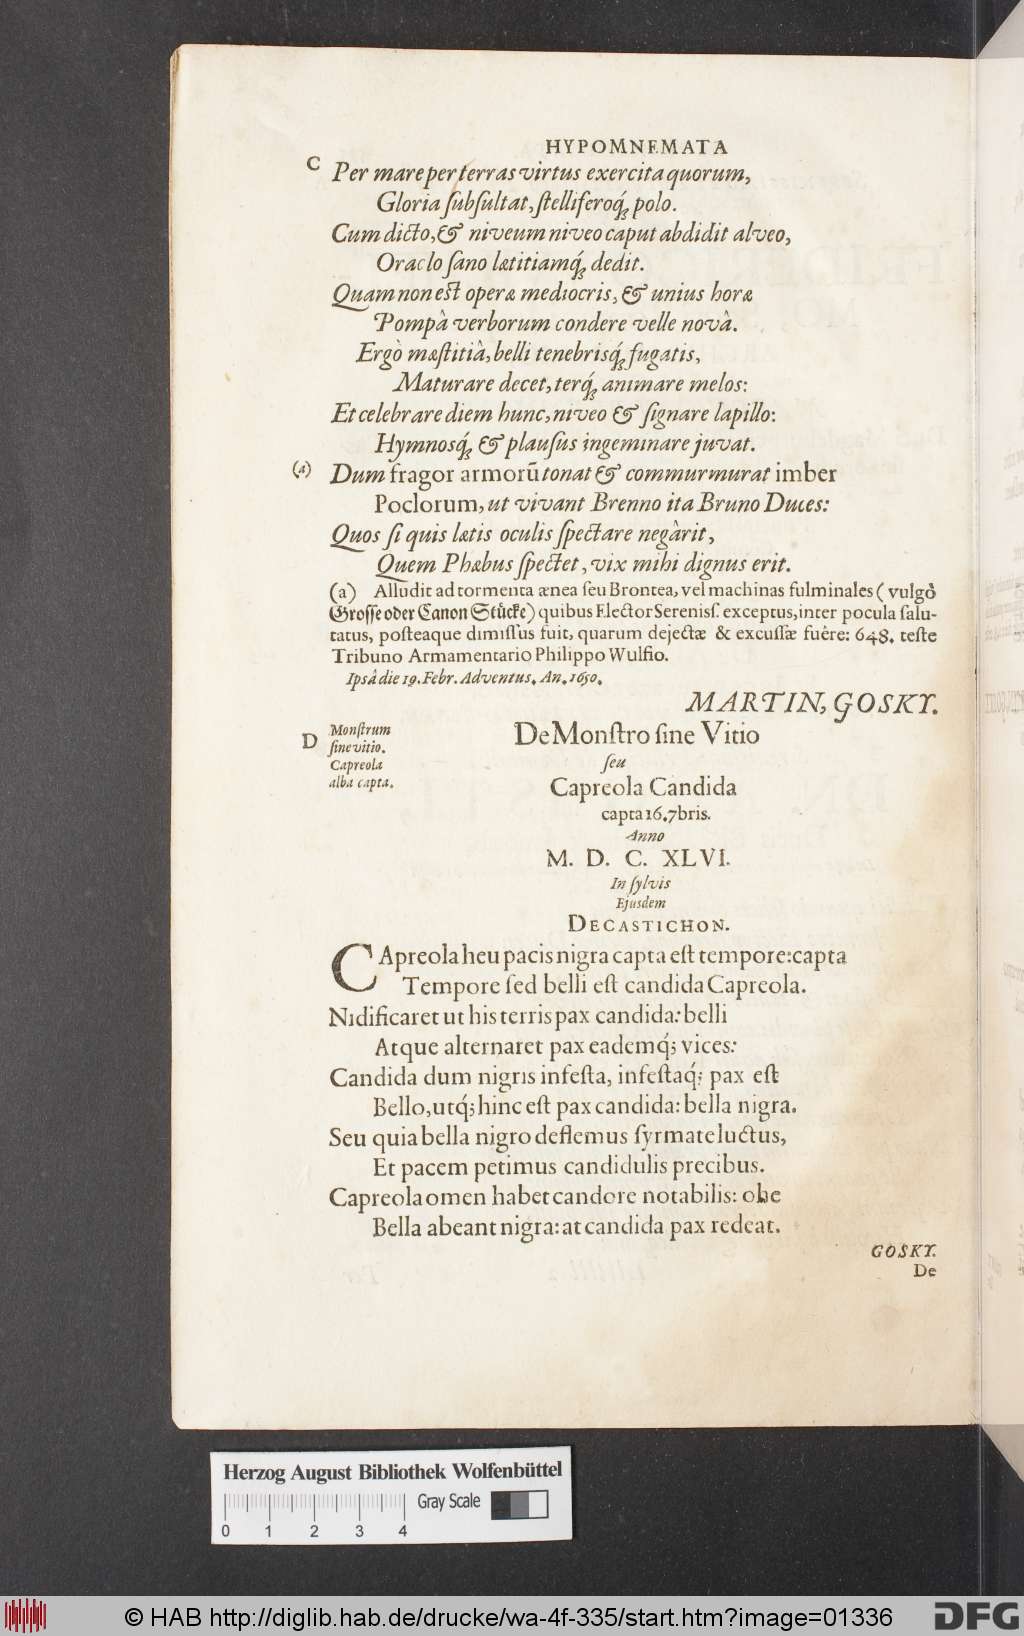 HYPOMNEMATA
C Per mare per terras virtus exercita quorum,
Gloria ſubſultat, ſtelliferoq́ꝫ polo.
Cum dicto, & niveum niveo caput abdidit alveo,
Oraclo ſano lætitiamq́ꝫ dedit.
Quam non eſt operæ mediocris, & unius horæ
Pompâ verborum condere velle novâ.
Ergò mæſtitiâ, belli tenebrisq́ꝫ fugatis,
Maturare decet, terq́ꝫ animare melos:
Et celebrare diem hunc, niveo & ſignare lapillo:
Hymnosq́ꝫ & plauſus ingeminare juvat.
(a) Dum fragor armorũ tonat & commurmurat imber
Poclorum, ut vivant Brenno ita Bruno Duces:
Quos ſi quis lætis oculis ſpectare negârit,
Quem Phæbus ſpectet, vix mihi dignus erit.
(a) Alludit ad tormenta ænea ſeu Brontea, vel machinas fulminales (vulgò
Groſſe oder Canon Stücke) quibus Elector Sereniſſ. exceptus, inter pocula ſalu-
tatus, poſteaque dimiſſus fuit, quarum dejectæ & excuſſæ fuêre: 648. teſte
Tribuno Armamentario Philippo Wulfio.
Ipsâ die 19. Febr. Adventus. An. 1650.
MARTIN, GOSKY.
D Monſtrum
ſine vitio.
Capreola
alba capta.
De Monſtro ſine Vitio
ſeu
Capreola Candida
capta 16. 7bris.
Anno
M. D. C. XLVI.
In ſylvis
Ejusdem
DECASTICHON.
CApreola heu pacis nigra capta eſt tempore: capta
Tempore ſed belli eſt candida Capreola.
Nidificaret ut his terris pax candida: belli
Atque alternaret pax eademq́ꝫ vices:
Candida dum nigris infeſta, infeſtaq́ꝫ pax eſt
Bello, utq́ꝫ hinc eſt pax candida: bella nigra.
Seu quia bella nigro deflemus ſyrmate luctus,
Et pacem petimus candidulis precibus.
Capreola omen habet candore notabilis: ohe
Bella abeant nigra: at candida pax redeat.
GOSKY.
De
Herzog August Bibliothek Wolfenbüttel
Gray Scale
0 1 2 3 4
© HAB http://diglib.hab.de/drucke/wa-4f-335/start.htm?image=01336
DFG